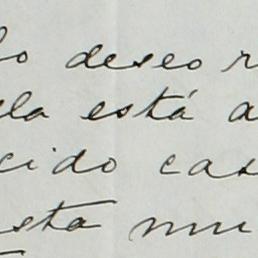 deseo
está a
cido cas
sta mu